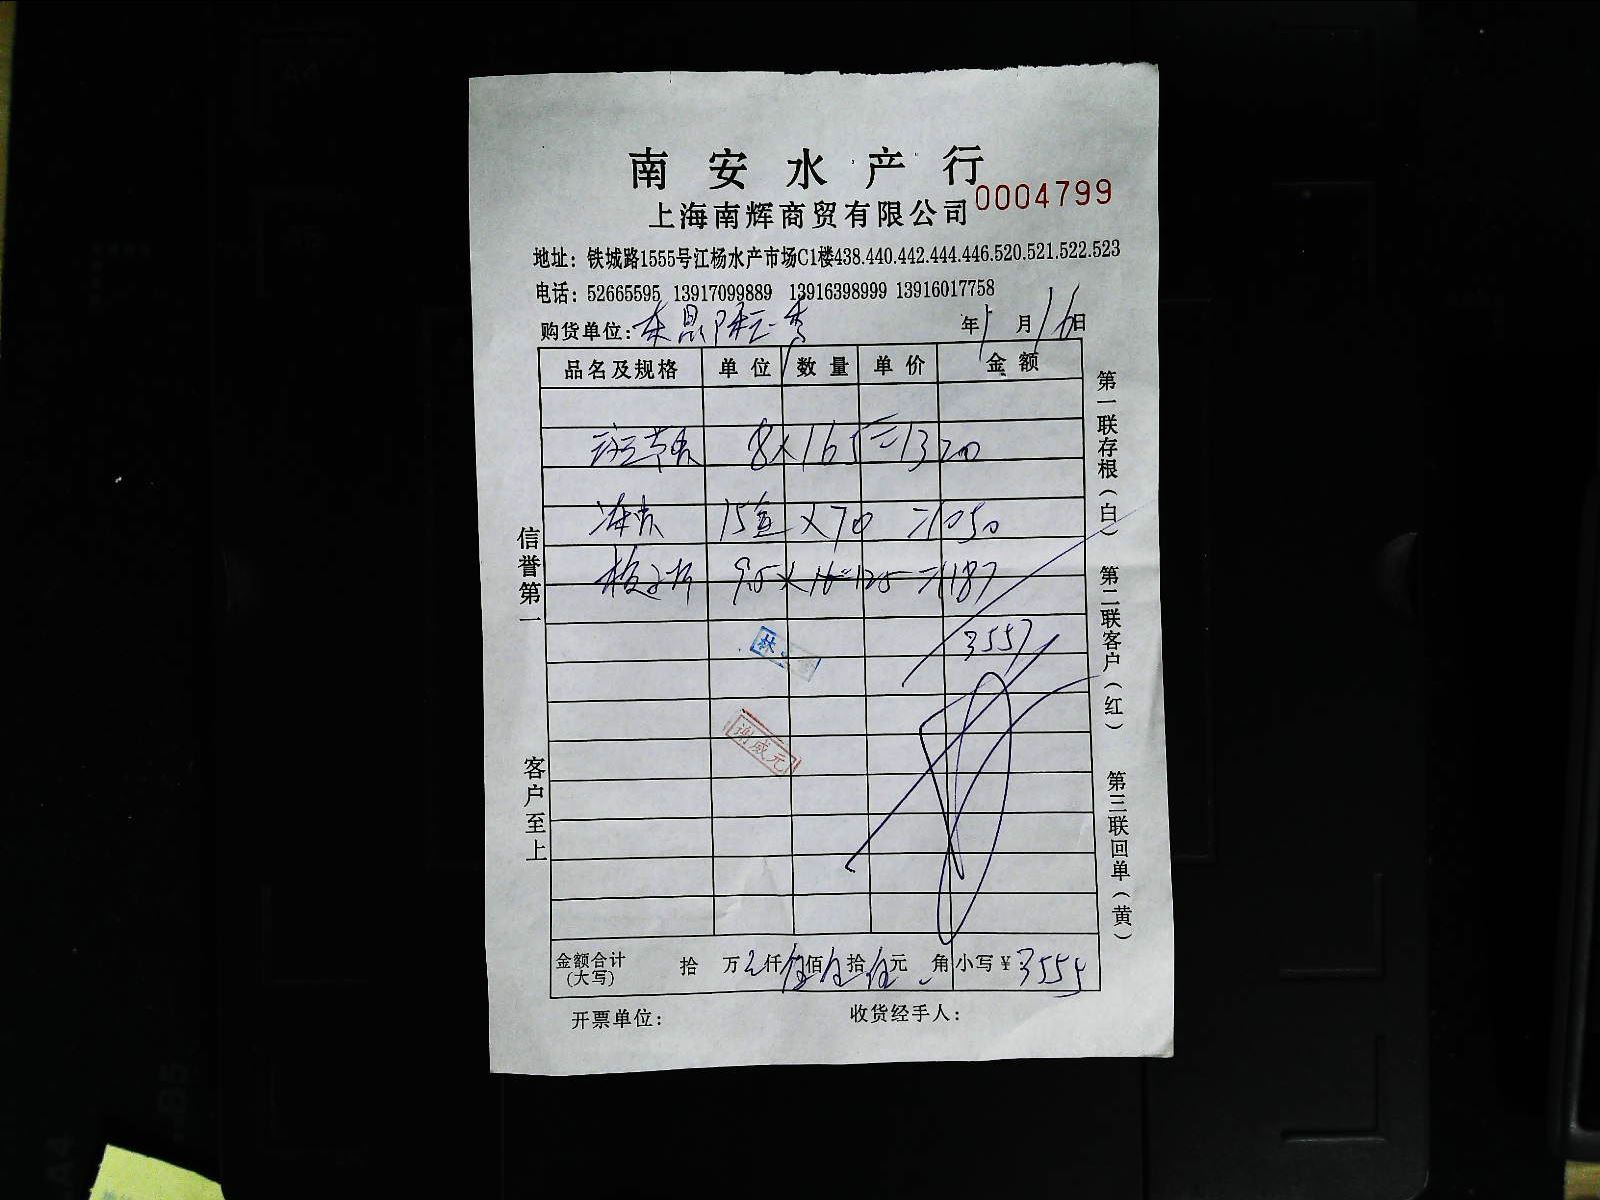 南安水产行
上海南辉商贸有限公司 0004799
地址：铁城路1555号江杨水产市场C1楼438.440.442.444.446.520.521.522.523
电话：52665595 13917099889 13916398999 13916017758
购货单位： 年 1 月 16 日
品名及规格 单位 数量 单价 金额
8×165=1320
15 ×70 =1050
9.5× 125 =1187
3557
林
谢威元
金额合计(大写) 拾 万 仟伍佰伍拾伍元 角 小写￥3555
开票单位： 收货经手人：
信誉第一
客户至上
第一联存根（白）
第二联客户（红）
第三联回单（黄）